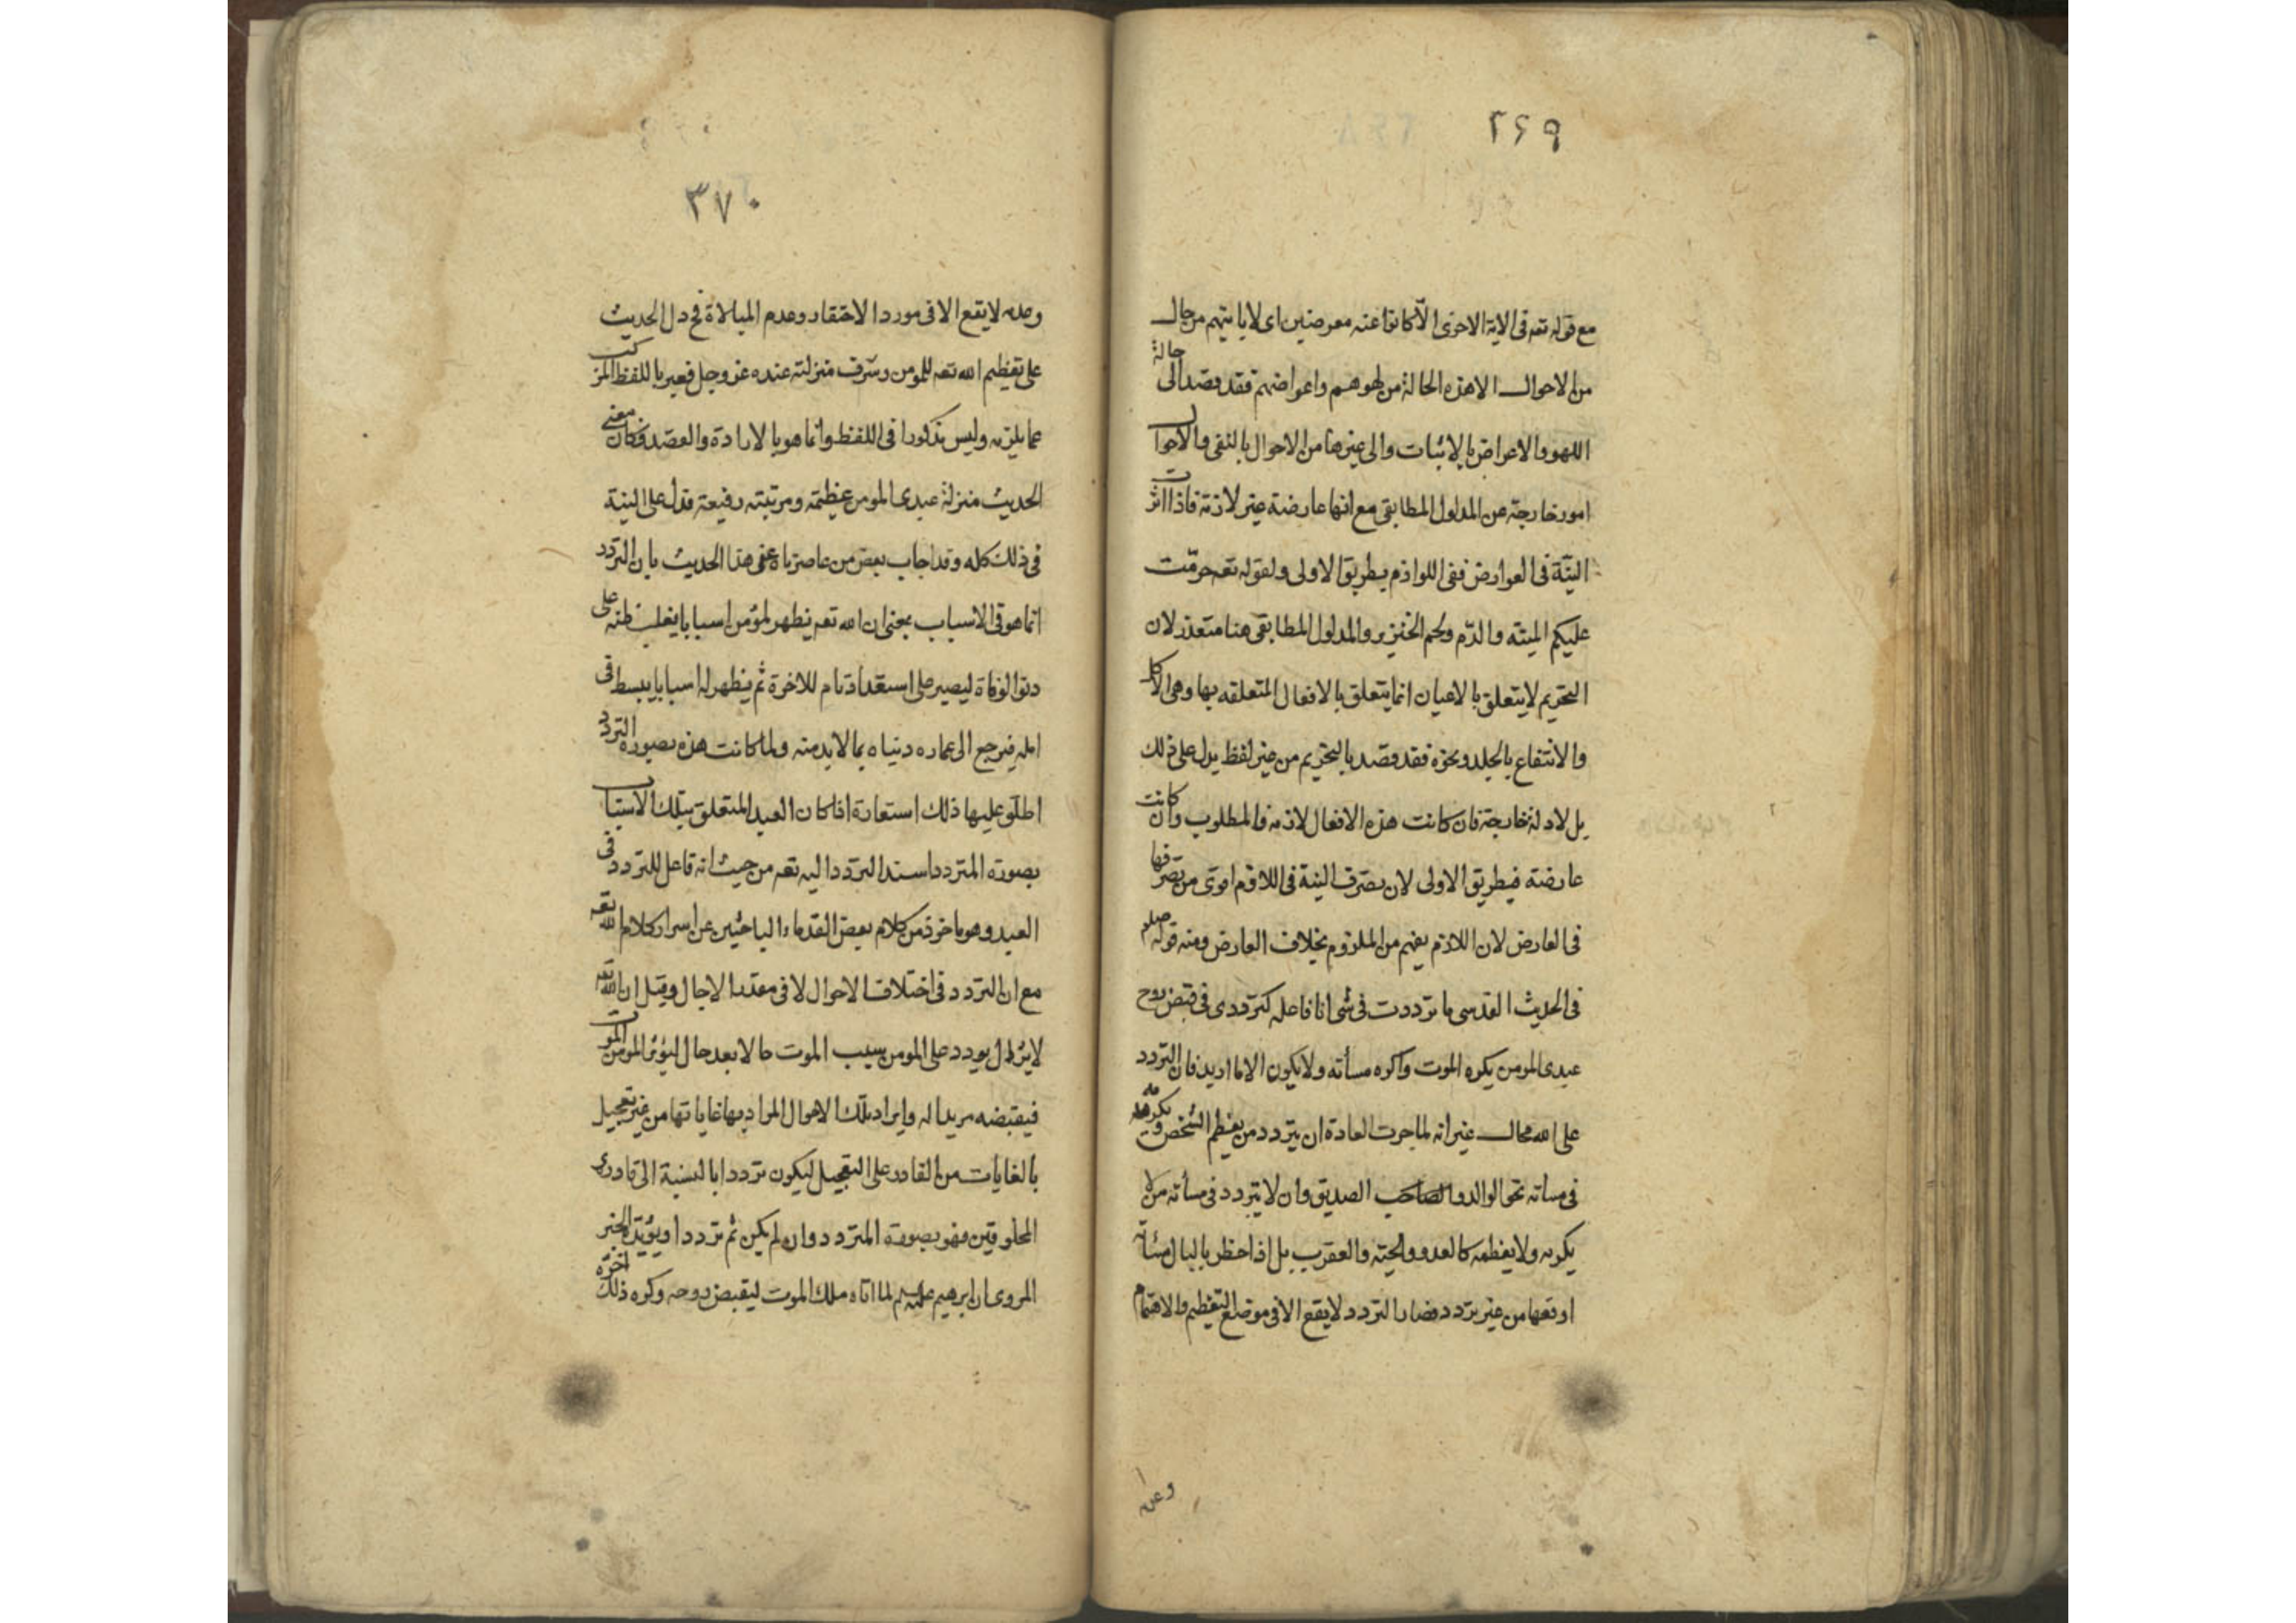 ٢۶٩
مع قوله تعه فى الاية الاخرى الا كانوا عنه معرضين اى لا ياتيهم من حال
من الاحوال الا هذه الحالة من لهوهم واعراضهم فقد قصد الى حالة
اللهو والاعراض بالاثبات والى غيرها من الاحوال بالنفى والاحوال
امور خارجة عن المدلول المطابقى مع انها عارضة غير لازمة فاذا اثرت
النيّة فى العوارض ففى اللوازم بطريق الاولى ولقوله تعه حرّمت
عليكم الميته والدّم ولحم الخنزير والمدلول المطابقى هنا متعذر لان
التحريم لا يتعلق بالاعيان انما يتعلق بالافعال المتعلقه بها وهى الاكل
والانتفاع بالجلد ونحوه فقد قصد بالتحريم من غير لفظ يدل على ذلك
بل لادلة خارجة فان كانت هذه الافعال لازمه فالمطلوب وان كانت
عارضته فبطريق الاولى لان تصرّف النية فى اللازم اقوى من تصرّفها
فى العارض لان اللازم يفهم من الملزوم بخلاف العارض ومنه قوله صلعم
فى الحديث القدسى ما ترددت فى شى انا فاعله كترددى فى قبض روح
عبدى المومن يكره الموت واكره مسأته ولا يكون الا ما اريد فان التردد
على الله محال غير انه لما جرت العادة ان يتردد من يعظم الشخص ويكرمه
فى مساته نحو الوالد والصاحب الصديق وان لا يتردد فى مسأته من لا
يكرمه ولا يعظمه كالعدو والحيّه والعقرب بل اذا خطر بالبال مسئاته
اوقعها من غير تردد فصار التردد لا يقع الا فى موضع التعظيم والاهتمام
وعن
٣٧٠
وعدمه لا يقع الا فى مورد الاحتقار وعدم المبالاة فح دل الحديث
على تعظيم الله تعه للمومن وشرف منزلته عنده عز وجل فعبر باللفظ المركب
عما يلزمه وليس مذكورا فى اللفظ وانما هو بالارادة والقصد فكان معنى
الحديث منزلة عبدى المومن عظيمه ومرتبته رفيعة فدل على النية
فى ذلك كله وقد اجاب بعض من عاصرناه عن هذا الحديث بان التردد
انما هو فى الاسباب بمعنى ان الله تعه يظهر لمؤمن اسبابا يغلب ظنه على
دنو الوفاة ليصير على استعداد تام للاخرة ثم يظهر له اسبابا يبسط فى
امله فيرجع الى عماره دنياه بما لابد منه ولما كانت هذه بصوره التردد
اطلق عليها ذلك استعارة اذا كان العبد المتعلق بتلك الاسباب
بصورة المتردد اسند التردد اليه تعه من حيث انه فاعل للتردد فى
العبد وهو ماخوذ من كلام بعض القدماء الباحثين عن اسرار كلام الله تعه
مع ان التردد فى اختلاف الاحوال لا فى مقدر الاجال وقيل ان الله تعه
لا يزال يورد على المومن سبب الموت حالا بعد حال ليؤثر المومن الموت
فيقبضه مريدا له وايراد تلك الاحوال المراد بها غاياتها من غير تعجيل
بالغايات من القادر على التعجيل ليكون ترددا بالنسبة الى قادرى
المخلوقين فهو بصورة المتردد وان لم يكن ثم تردد ويؤيّد الخبر
المروى ان ابرهيم عليه السلم لما اتاه ملك الموت ليقبض روحه وكره ذلك اخّره